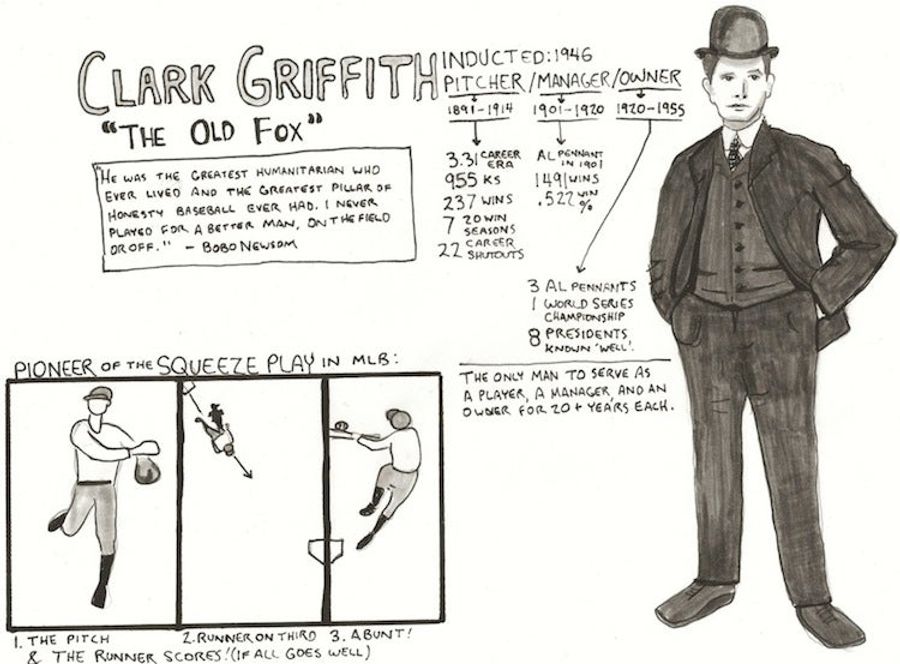 CLARK GRIFFITH
"THE OLD FOX"
"HE WAS THE GREATEST HUMANITARIAN WHO
EVER LIVED AND THE GREATEST PILLAR OF
HONESTY BASEBALL EVER HAD. I NEVER
PLAYED FOR A BETTER MAN, ON THE FIELD
OR OFF." - BOBO NEWSOM
INDUCTED: 1946
PITCHER/MANAGER/OWNER
1891-1914 1901-1920 1920-1955
3.31 CAREER
ERA
955 KS
237 WINS
7 20 WIN
SEASONS
22 CAREER
SHUTOUTS
AL PENNANT
IN 1901
1491 WINS
.522 WIN
%
3 AL PENNANTS
1 WORLD SERIES
CHAMPIONSHIP
8 PRESIDENTS
KNOWN 'WELL'.
THE ONLY MAN TO SERVE AS
A PLAYER, A MANAGER, AND AN
OWNER FOR 20+ YEARS EACH.
PIONEER OF THE SQUEEZE PLAY IN MLB:
1. THE PITCH 2. RUNNER ON THIRD 3. A BUNT!
& THE RUNNER SCORES! (IF ALL GOES WELL)